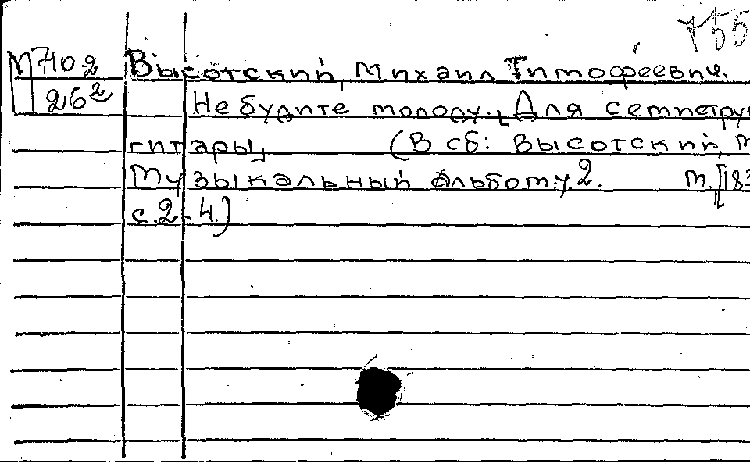 755
М 402 Высотский, Михаил Тимофеевич.
26² Не будите молоду.. Для семистру
гитары (В сб: Высотский, М
Музыкальный альбом. 2. М. [183
с. 2-4.)